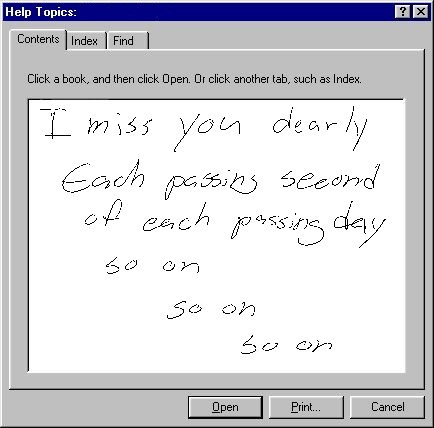 Help Topics:
Contents Index Find
Click a book, and then click Open. Or click another tab, such as Index.
I miss you dearly
Each passing second
of each passing day
so on
so on
so on
Open Print... Cancel